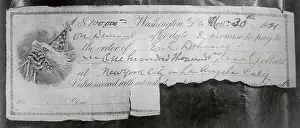 $100000 — Washington D.C. Nov 30 1921
On Demand after date I promise to pay to
the order of
One hundred thousand Dollars
at New York City or Los Angeles Calif.
Value received with interest
No. Due